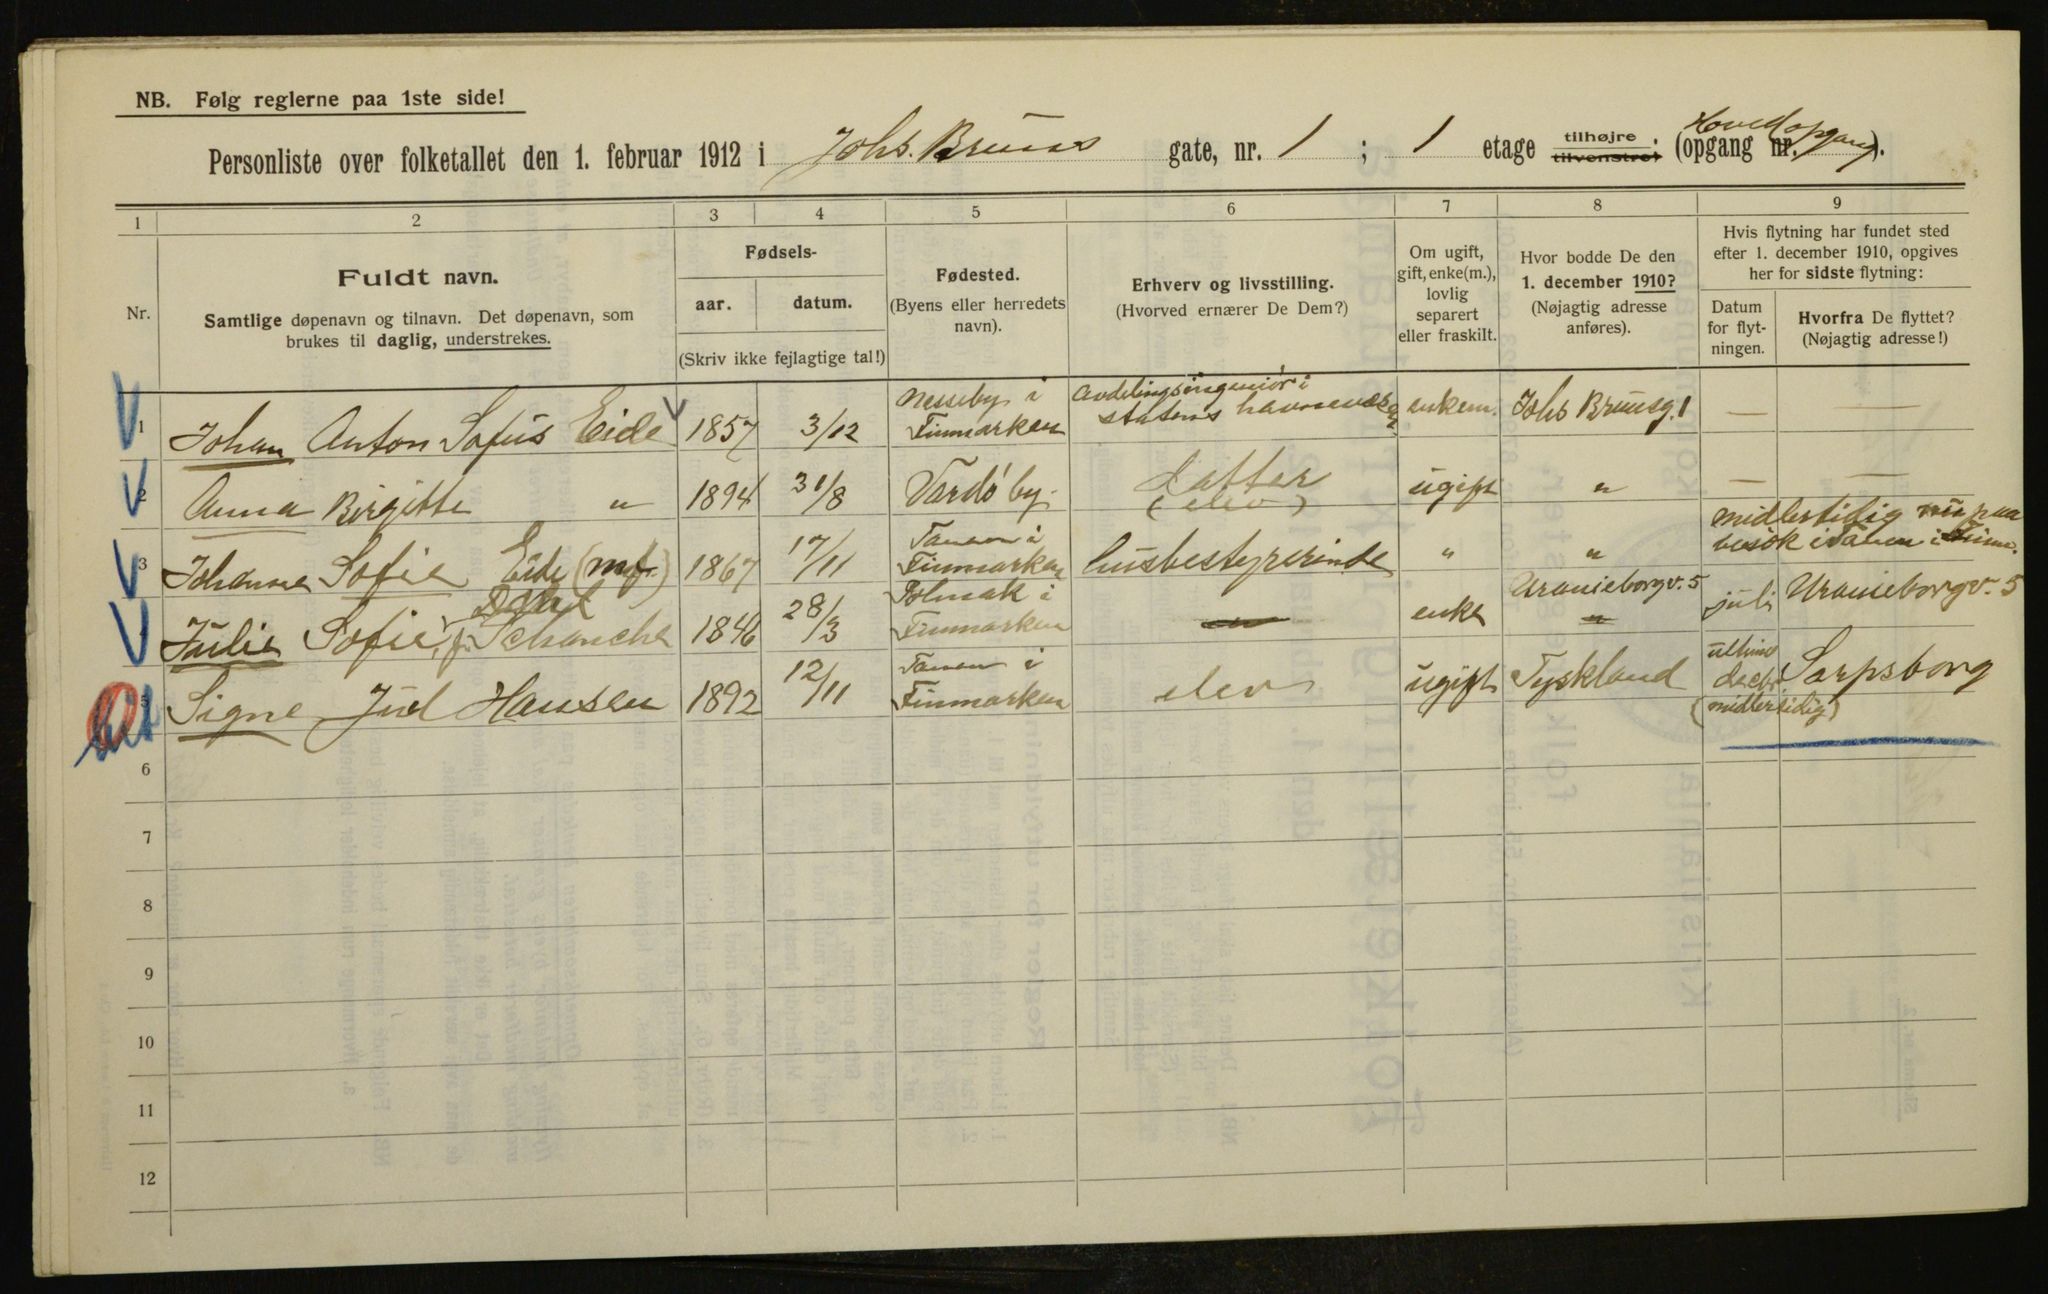 NB. Følg reglerne paa 1ste side!
Personliste over folketallet den 1. februar 1912 i Johs. Bruns gate, nr. 1 ; 1 etage tilhøjre tilvenstre ; (opgang nr. Hovedopgang).
1 2 3 4 5 6 7 8 9
Nr.
Fuldt navn.
Samtlige døpenavn og tilnavn. Det døpenavn, som
brukes til daglig, understrekes.
Fødsels-
aar.
datum.
(Skriv ikke fejlagtige tal!)
Fødested.
(Byens eller herredets
navn).
Erhverv og livsstilling.
(Hvorved ernærer De Dem?)
Om ugift,
gift, enke(m.),
lovlig
separert
eller fraskilt.
Hvor bodde De den
1. december 1910?
(Nøjagtig adresse
anføres).
Hvis flytning har fundet sted
efter 1. december 1910, opgives
her for sidste flytning:
Datum
for flyt-
ningen.
Hvorfra De flyttet?
(Nøjagtig adresse!)
1 Johan Anton Sofus Eide 1857 3/12 Nesseby i Finmarken Avdelingsingeniør i statens havnevæsen enkem. Johs Brunsg. 1 — —
2 Anna Birgitte " 1894 31/8 Vardö by. datter (elev) ugift " — —
3 Johanna Sofie Eide 1867 17/11 Tanen i Finmarken husbestyrerinde " " midlertidig paa besök i Tanen i Finm.
4 Julie Sofie Dahl f. Schanche 1846 28/3 Polmak i Finmarken " enke Uranieborgv. 5 " juli Uranieborgv. 5
5 Signe Jul Hansen 1892 12/11 Tanen i Finmarken elev ugift Tyskland ultimo decbr. (midlertidig) Sarpsborg
6
7
8
9
10
11
12